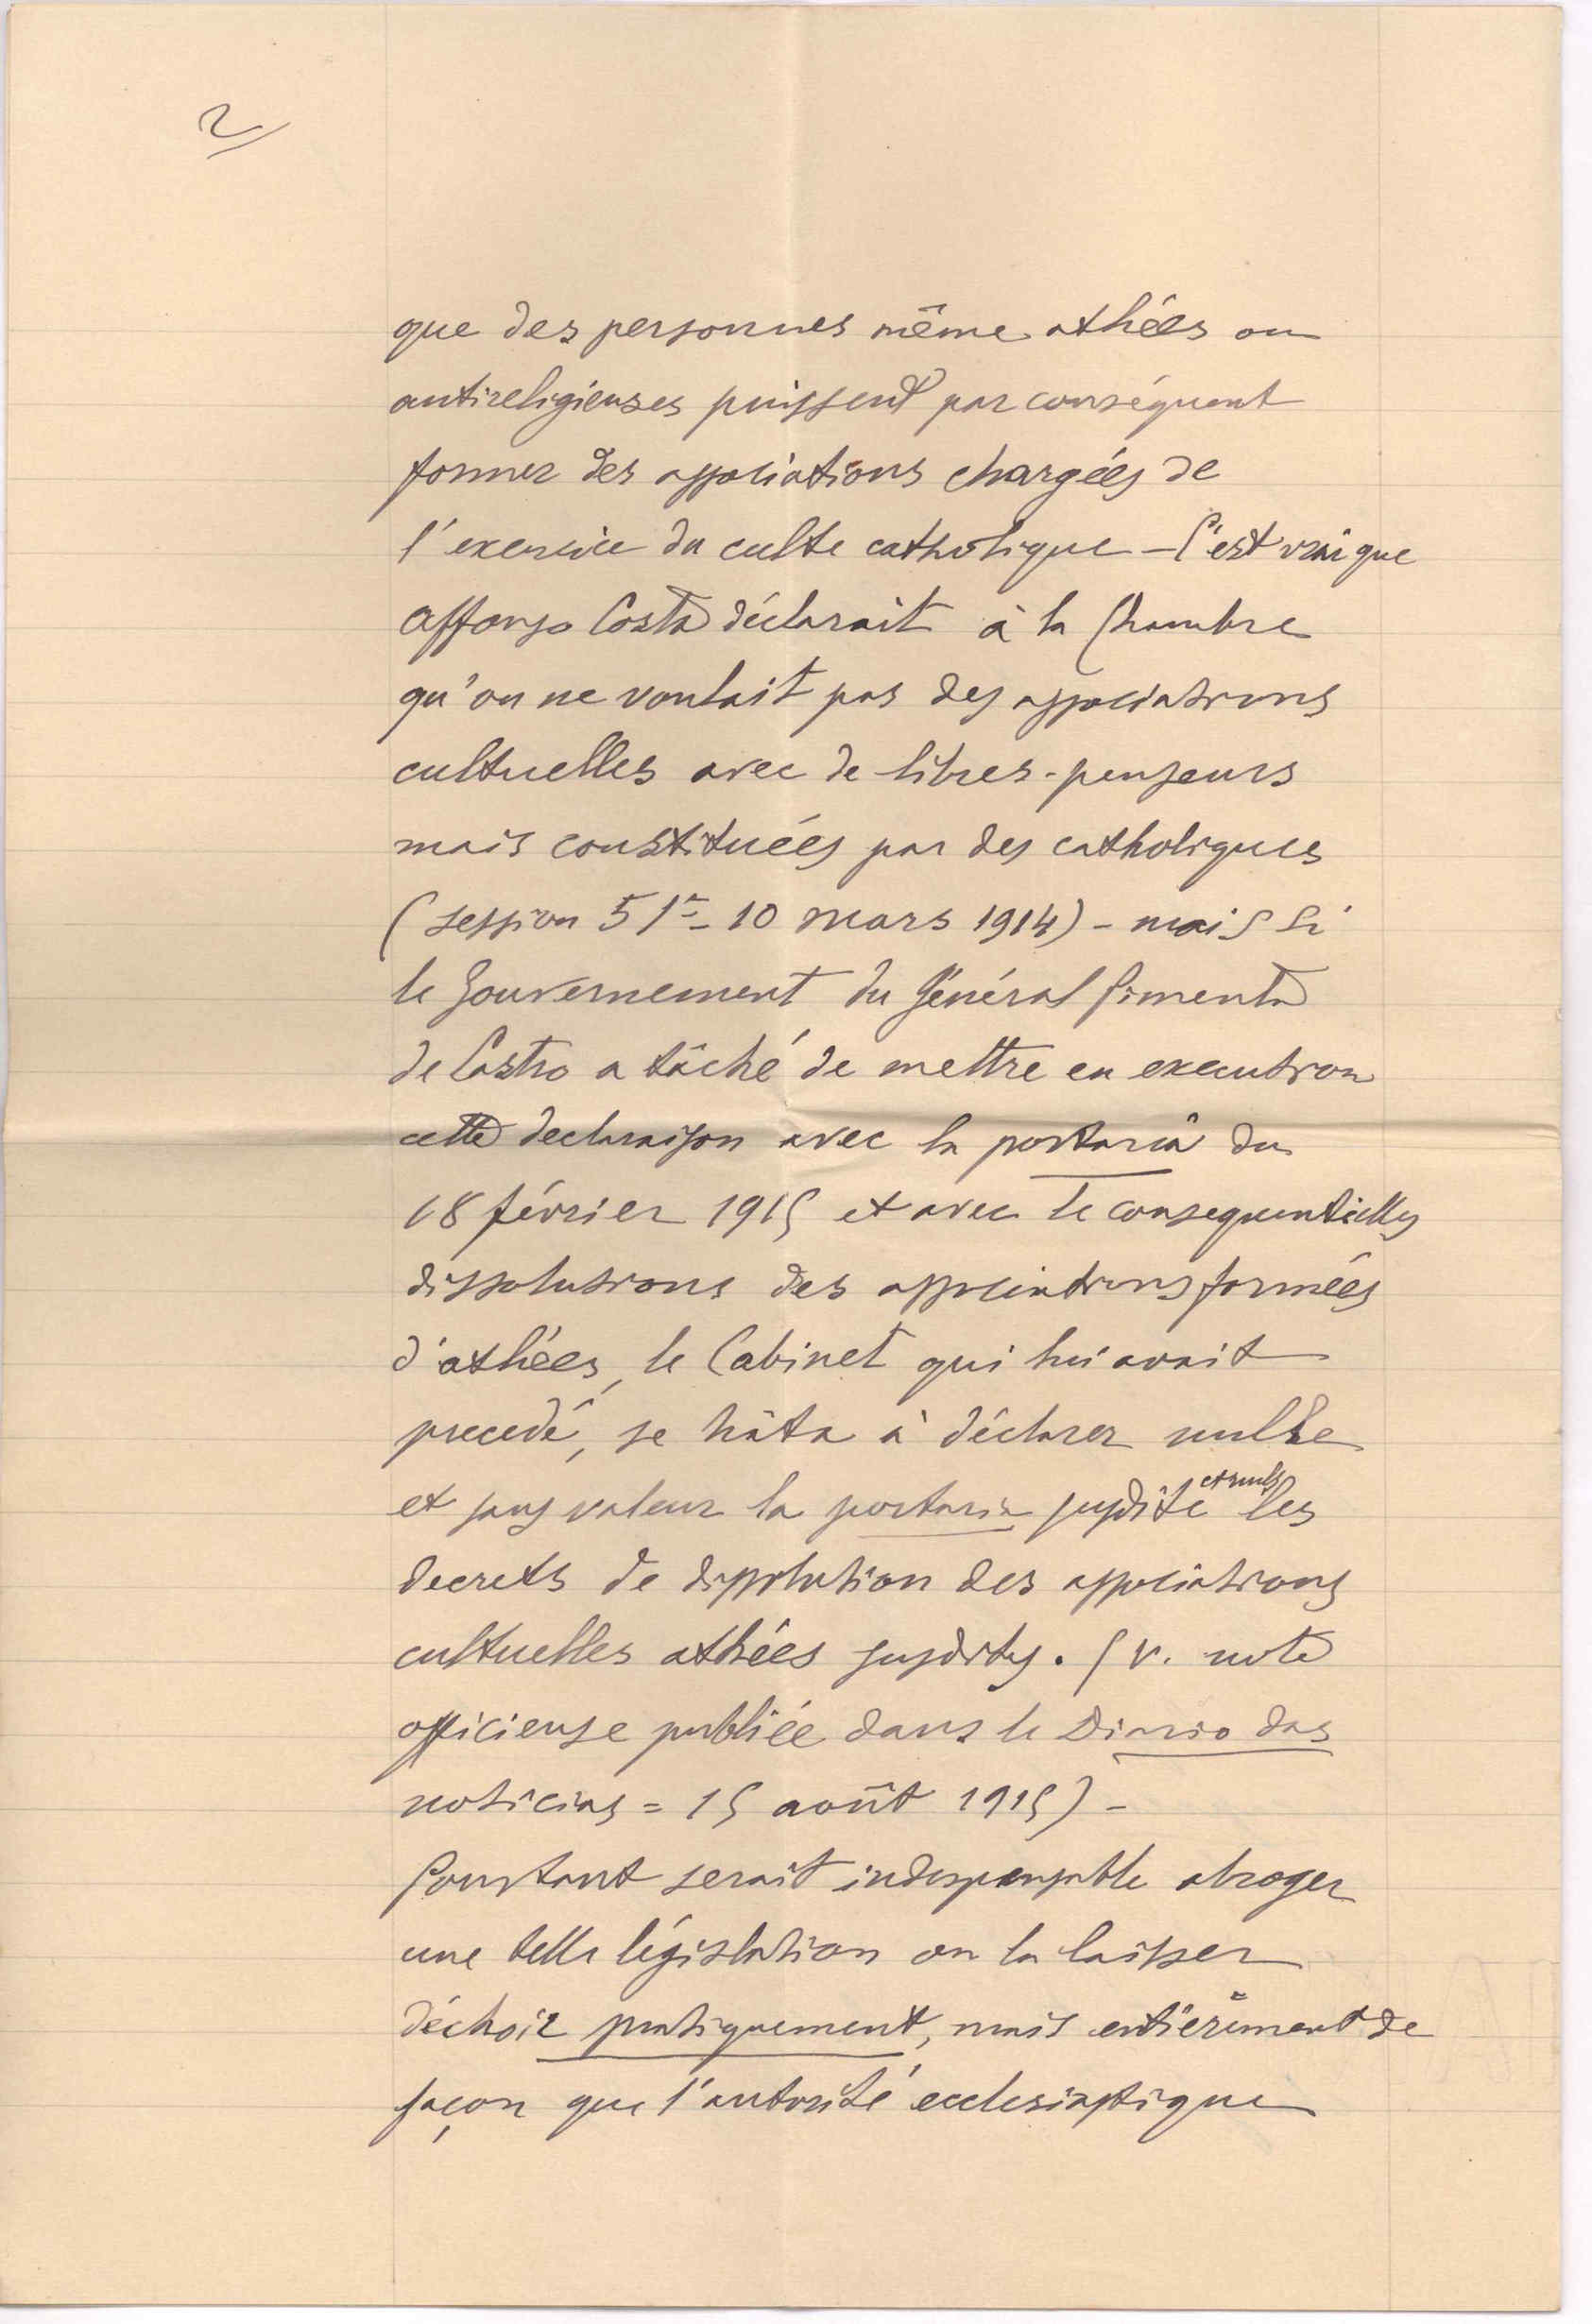 2
que des personnes même athées ou
antireligieuses puissent par conséquent
former des associations chargées de
l'exercice du culte catholique – C'est vrai que
Affonso Costa déclarait à la Chambre
qu'on ne voulait pas des associations
cultuelles avec de libres-penseurs
mais constituées par des catholiques
(session 51e – 10 mars 1914) – mais si
le Gouvernement du Général Pimenta
de Castro a tâché de mettre en execution
cette declaraison avec la portaria du
18 février 1915 et avec le consequentielles
dissolutions des associations formées
d'athées, le Cabinet qui lui avait
precedé, se hâta à déclarer nulle
et sans valeur la portaria susdite et nuls les
decrets de dissolution des associations
cultuelles athées susdites. (V. note
officieuse publiée dans le Diario das
noticias = 15 août 1915) –
Pourtant serait indispensable abroger
une telle législation ou la laisser
déchoir pratiquement, mais entièrement de
façon que l'autorité ecclesiastique